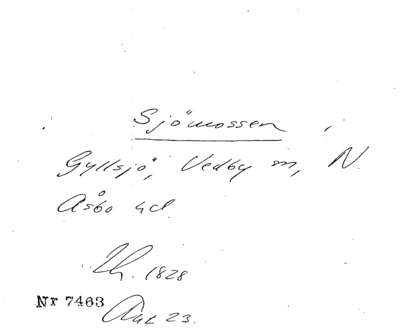 Sjömossen
Gyllsjö, Vedby sn, N.
Åsbo hd.
Th. 1828
Nr 7463
Ant 23.